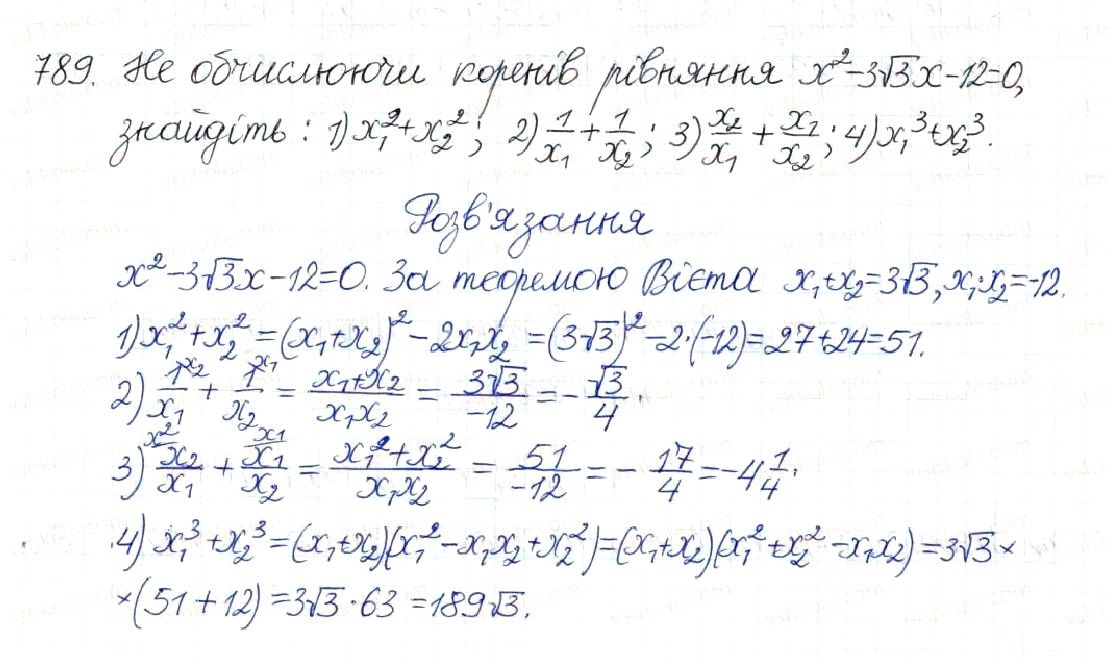 789. Не обчислюючи коренів рівняння x²-3√3x-12=0,
знайдіть: 1) x₁²+x₂²; 2) 1/x₁ + 1/x₂; 3) x₂/x₁ + x₁/x₂; 4) x₁³+x₂³.
Розв'язання
x²-3√3x-12=0. За теоремою Вієта x₁+x₂=3√3, x₁·x₂=-12.
1) x₁²+x₂² = (x₁+x₂)²-2x₁x₂ = (3√3)²-2·(-12)=27+24=51.
2) 1^{\x₂}/x₁ + 1^{\x₁}/x₂ = (x₁+x₂)/(x₁x₂) = 3√3/(-12) = -√3/4.
3) x₂^{\x₂}/x₁ + x₁^{\x₁}/x₂ = (x₁²+x₂²)/(x₁x₂) = 51/(-12) = -17/4 = -4 1/4.
4) x₁³+x₂³=(x₁+x₂)(x₁²-x₁x₂+x₂²)=(x₁+x₂)(x₁²+x₂²-x₁x₂)=3√3×
×(51+12)=3√3·63=189√3.